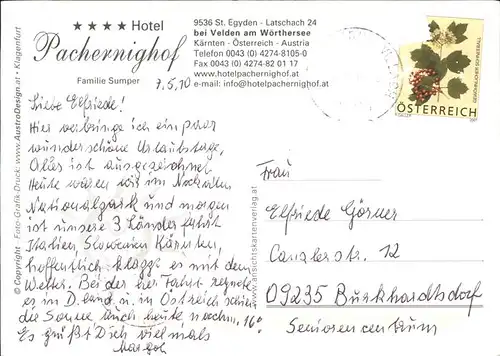 ★★★★ Hotel
Pachernighof
Familie Sumper
9536 St. Egyden - Latschach 24
bei Velden am Wörthersee
Kärnten - Österreich - Austria
Telefon 0043 (0) 4274-8105-0
Fax 0043 (0) 4274-82 01 17
www.hotelpachernighof.at
e-mail: info@hotelpachernighof.at
7.5.10
Liebe Elfriede!
Hier verbringe ich ein paar
wunderschöne Urlaubstage,
Alles ist ausgezeichnet
Heute waren wir im
Nationalpark und morgen
ist unsere 3 Länderfahrt
Italien Slowenien Kärnten,
hoffentlich klappt es mit dem
Wetter. Bei der her Fahrt regnete
es im D.land u. in Östreich schien
die Sonne auch heute nachm. 16°
Es grüßt Dich vielmals
Margot
Frau
Elfriede Görner
Canzlerstr. 12
09235 Burkhardtsdorf
Seniorencentrum
ÖSTERREICH
GEWÖHNLICHER SCHNEEBALL
© Copyright · Foto-Grafik-Druck: www.AustroDesign.at · Klagenfurt
www.ansichtskartenverlag.at